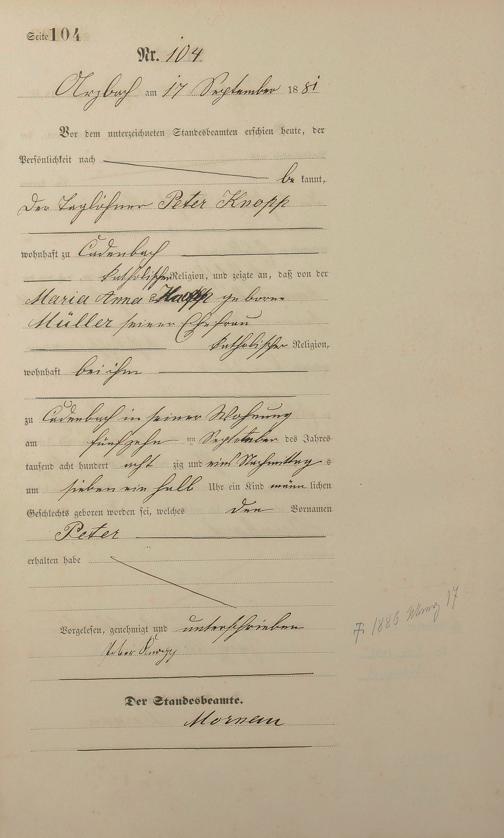 Seite 104
Nr. 104
Arzbach am 17 September 1881
Vor dem unterzeichneten Standesbeamten erschien heute, der
Persönlichkeit nach
be kannt,
Der Taglöhner Peter Knopp
wohnhaft zu Cadenbach
katholischer Religion, und zeigte an, daß von der
Maria Anna Knopp geborne
Müller seiner Ehefrau
katholischer Religion,
wohnhaft bei ihm
zu Cadenbach in seiner Wohnung
am fünfzehn ten September des Jahres
tausend acht hundert acht zig und eins Nachmittag s
um sieben ein halb Uhr ein Kind männ lichen
Geschlechts geboren worden sei, welches den Vornamen
Peter
erhalten habe
Vorgelesen, genehmigt und unterschrieben
Peter Knopp
Der Standesbeamte.
† 1886 17